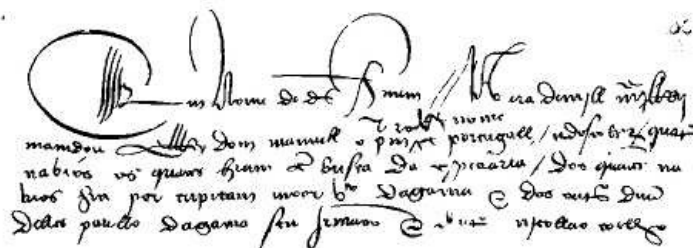 Em Nome de ds Amem / Na era de mill iiij LRvij
nome
mandou Rey dom manuell o portugall / a descobrir quatro
nabios os quaes hiam em busca da espeçiaria / dos quaes na
bios hia por capitam moor vco dagama e dos outs duu
delles paullo dagama seu Irmaao e nicollao coelho